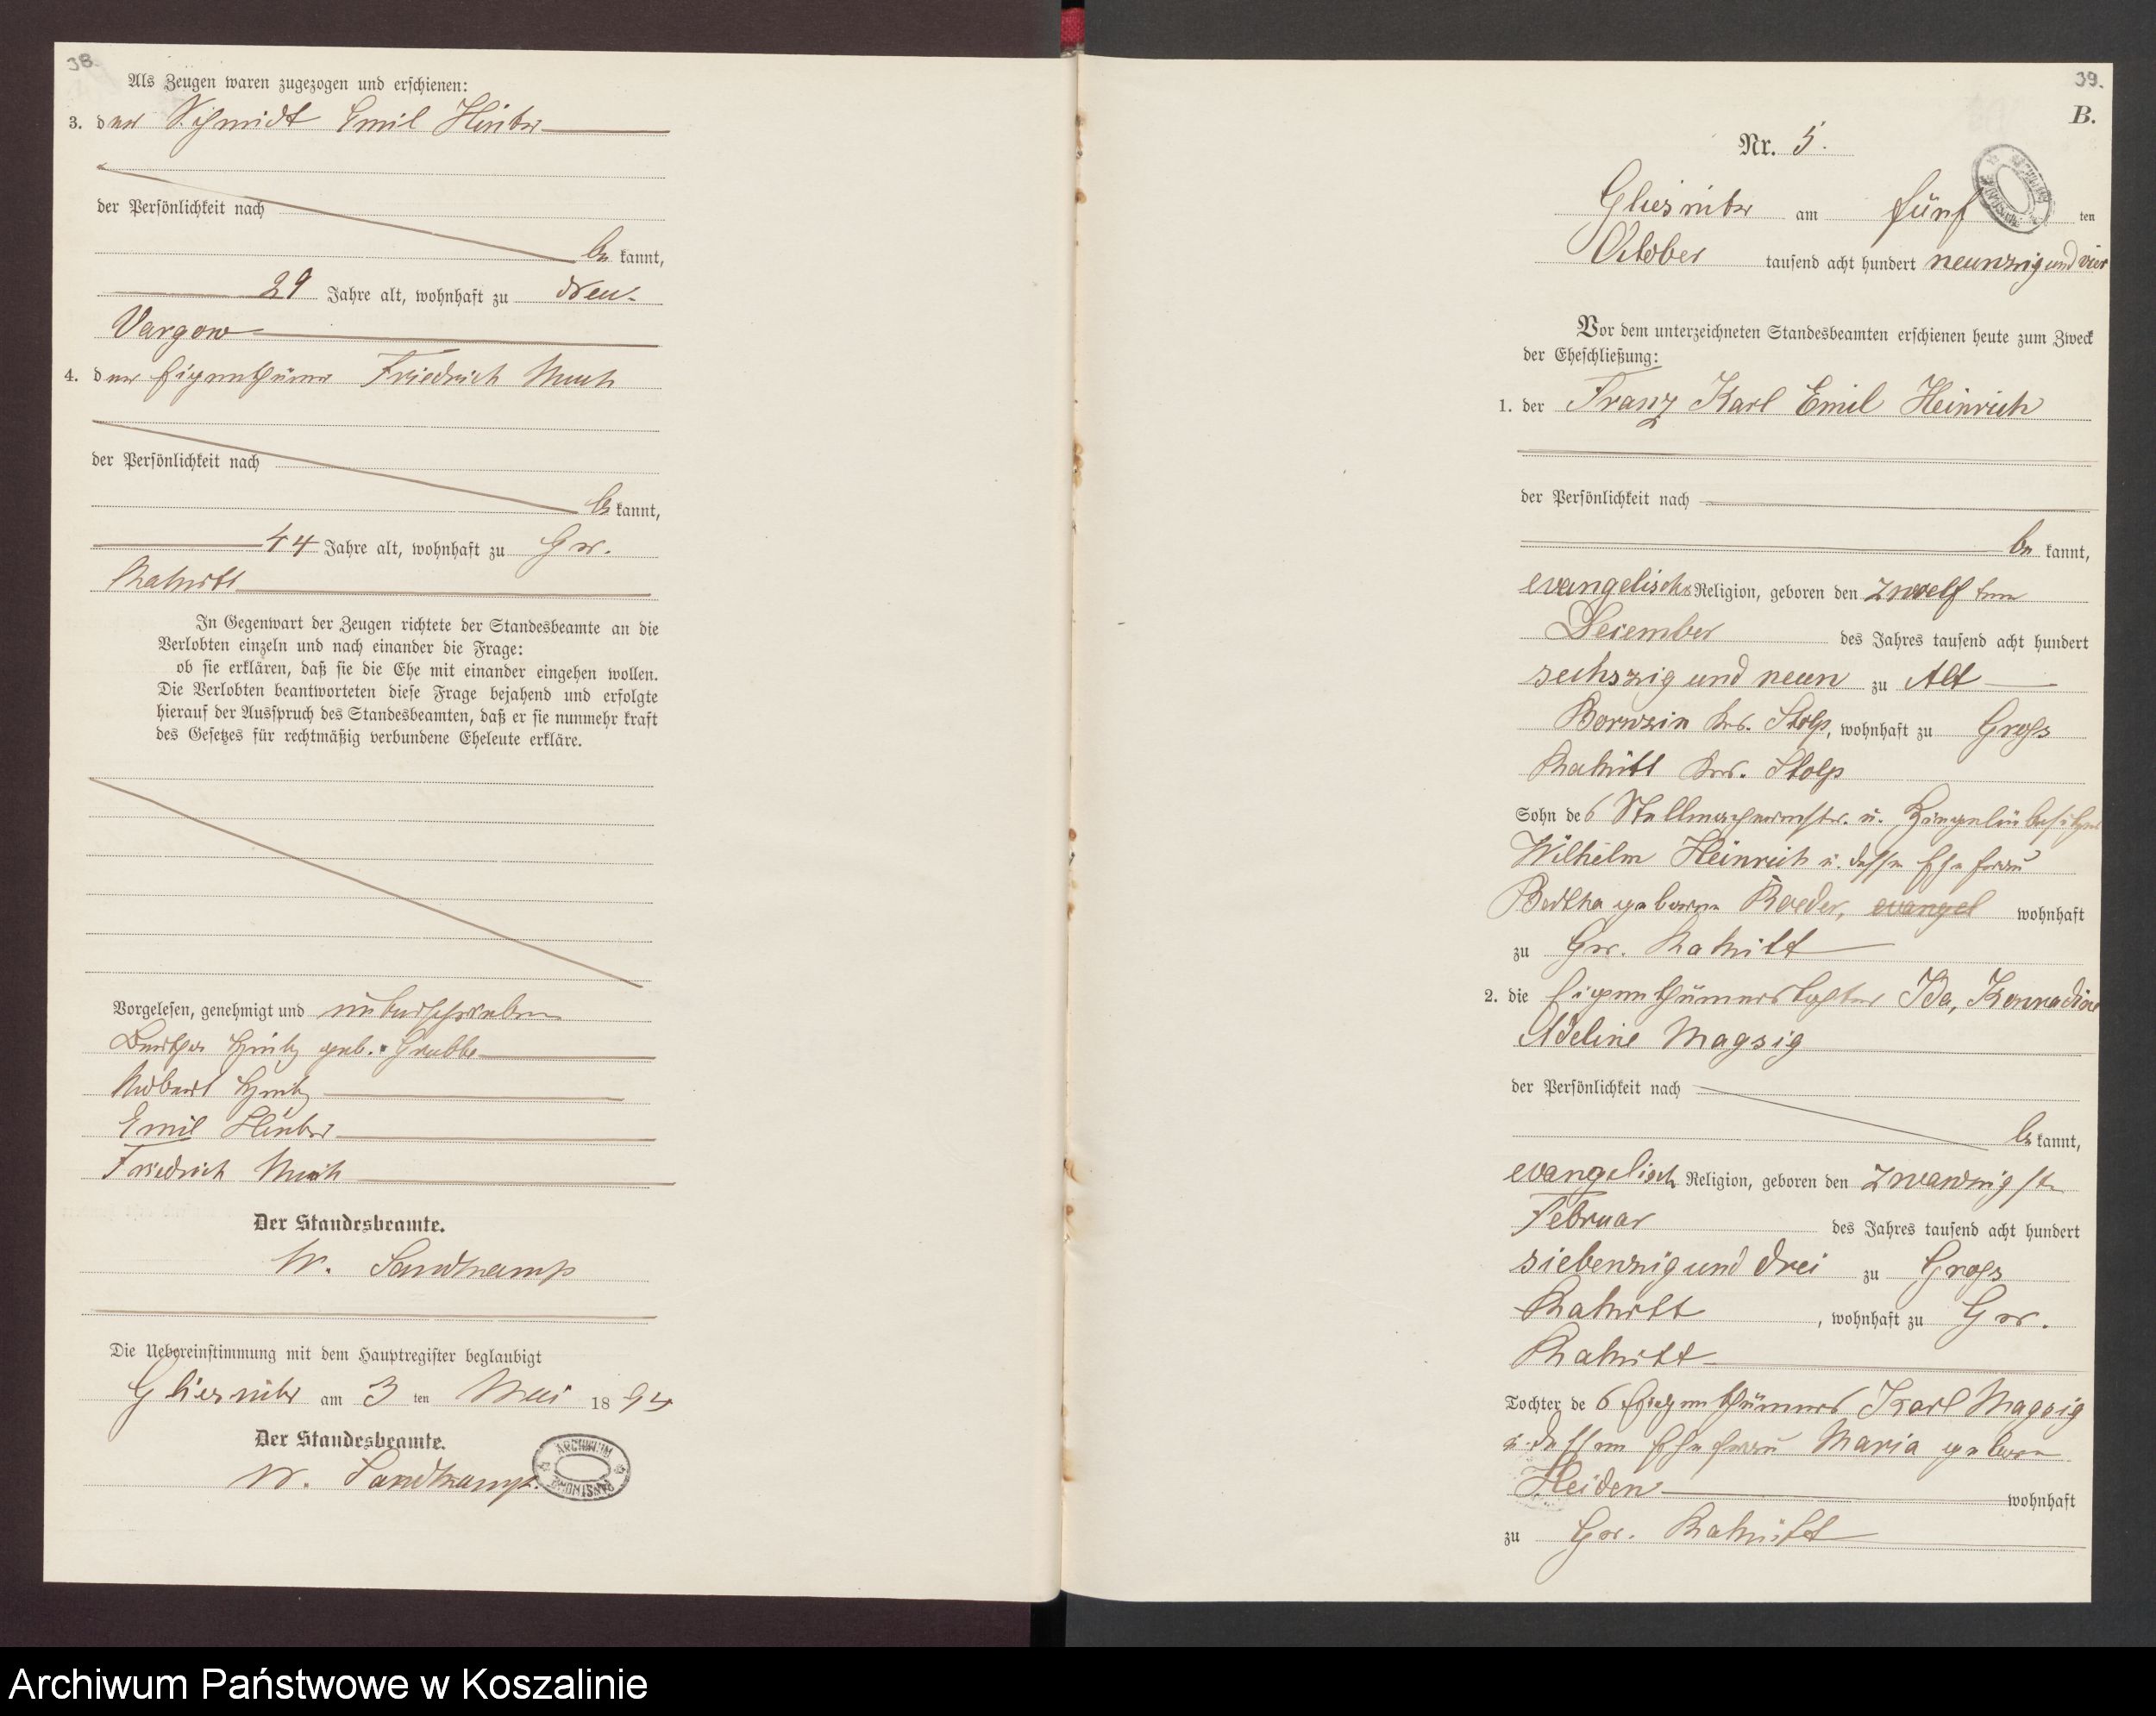 38.
Als Zeugen waren zugezogen und erschienen:
3. der Schmidt Emil Hinber
der Persönlichkeit nach
be kannt,
29 Jahre alt, wohnhaft zu Neu-
Vargow
4. der Eigenthümer Friedrich Much
der Persönlichkeit nach
be kannt,
44 Jahre alt, wohnhaft zu Gr.
Rakitt
In Gegenwart der Zeugen richtete der Standesbeamte an die
Verlobten einzeln und nach einander die Frage:
ob sie erklären, daß sie die Ehe mit einander eingehen wollen.
Die Verlobten beantworteten diese Frage bejahend und erfolgte
hierauf der Ausspruch des Standesbeamten, daß er sie nunmehr kraft
des Gesetzes für rechtmäßig verbundene Eheleute erkläre.
Vorgelesen, genehmigt und unterschrieben
Bertha geb. Grubbe
Robert
Emil Hinber
Friedrich Much
Der Standesbeamte.
W. Sandkamp
Die Uebereinstimmung mit dem Hauptregister beglaubigt
Gliesnitz am 3 ten Mai 18 94
Der Standesbeamte.
W. Sandkamp.
ARCHIWUM PAŃSTWOWE
39.
B.
Nr. 5.
Gliesnitz am fünf ten
October tausend acht hundert neunzig und vier
Vor dem unterzeichneten Standesbeamten erschienen heute zum Zweck
der Eheschließung:
1. der Franz Karl Emil Heinrich
der Persönlichkeit nach
be kannt,
evangelischer Religion, geboren den zwoelf ten
December des Jahres tausend acht hundert
sechszig und neun zu Alt
Bornzin Krs. Stolp, wohnhaft zu Gross
Rakitt Krs. Stolp
Sohn des Stellmachermstr. u.
Wilhelm Heinrich u. dessen Ehefrau
Bertha geborne Roeder, evangel wohnhaft
zu Gr. Rakitt
2. die Eigenthümerstochter Ida, Konradine
Adeline Magsig
der Persönlichkeit nach
be kannt,
evangelisch Religion, geboren den zwanzigsten
Februar des Jahres tausend acht hundert
siebenzig und drei zu Gross
Rakitt, wohnhaft zu Gr.
Rakitt
Tochter des Eigenthümers Karl Magsig
u. dessen Ehefrau Maria geborne
Heiden wohnhaft
zu Gr. Rakitt
Archiwum Państwowe w Koszalinie